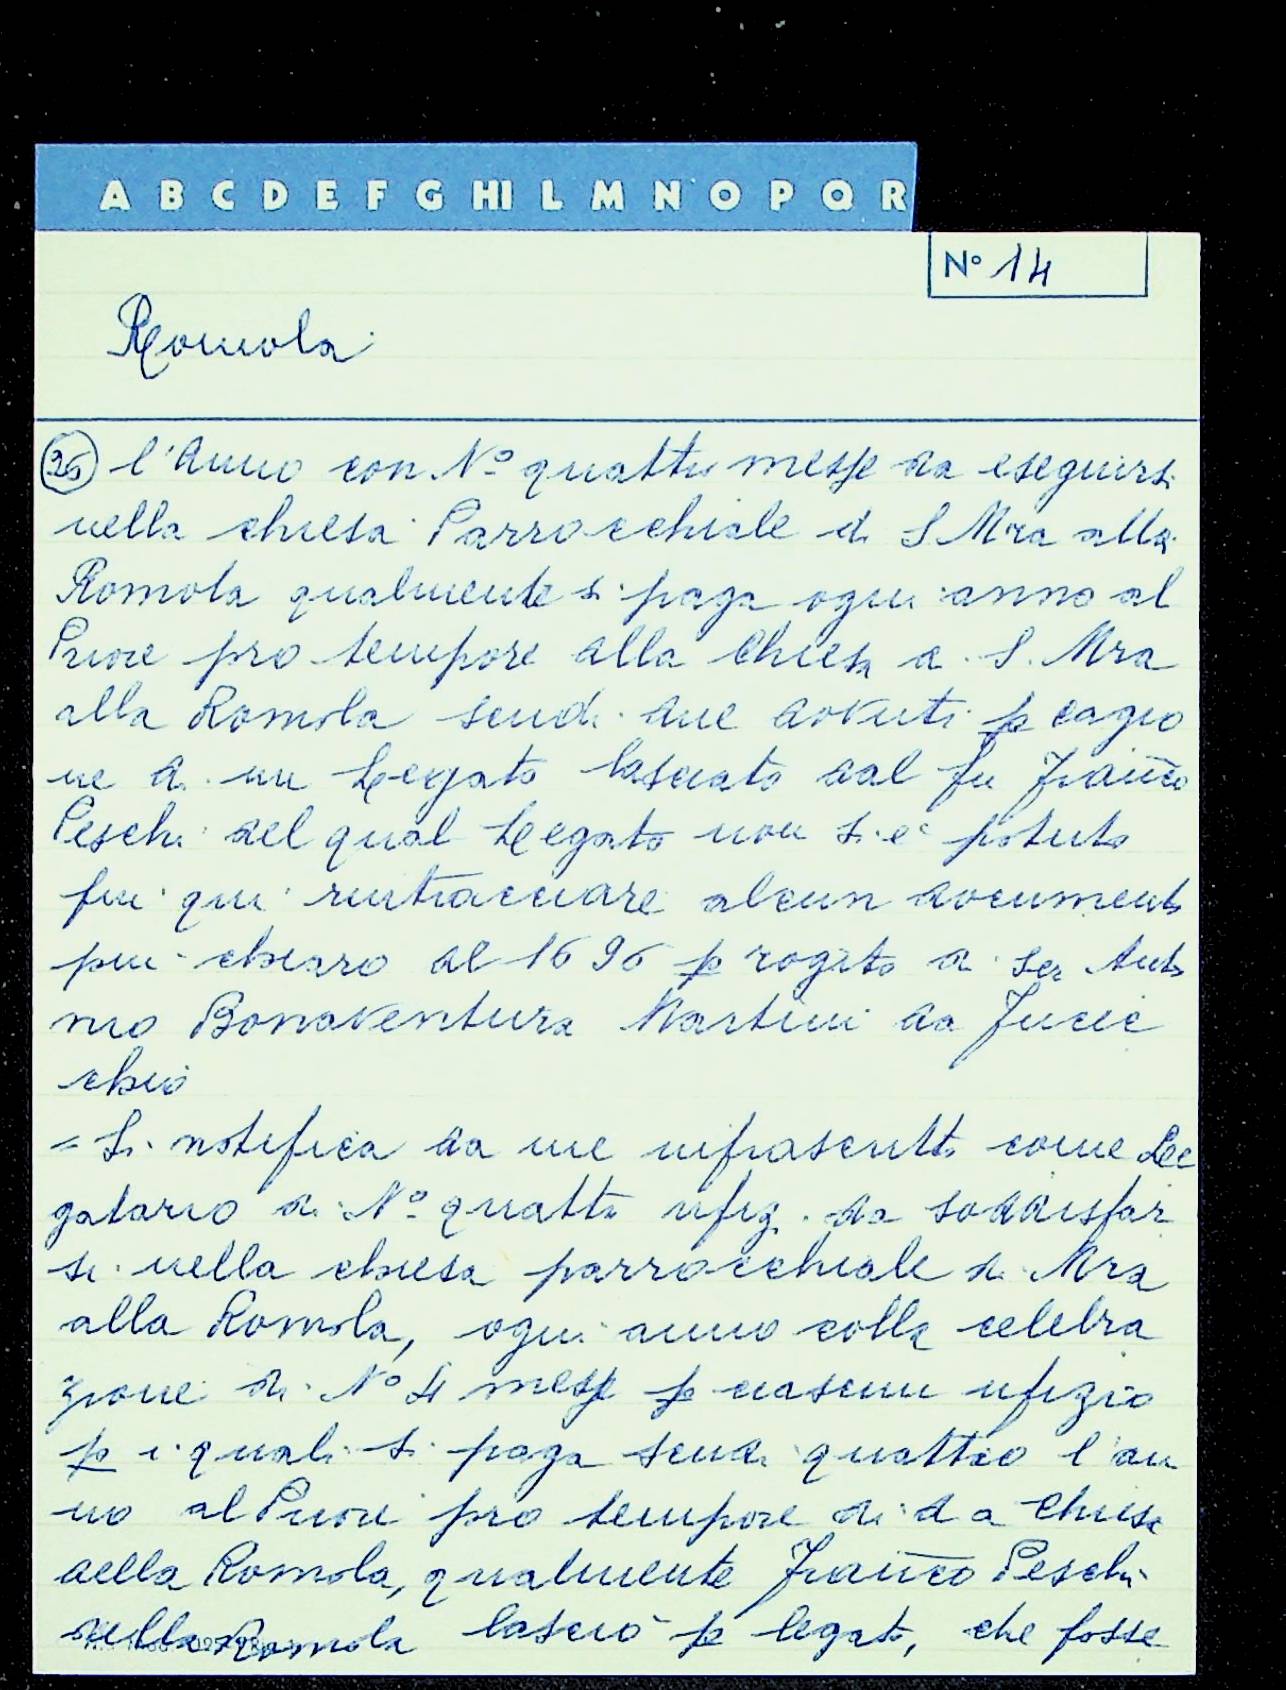 A B C D E F G HI L M N O P Q R
N° 14
Romola
26 l'Anno con N° quattro messe da eseguirsi
nella chiesa Parrocchiale di S Mra alla
Romola qualmente si paga ogni anno al
Priore pro tempore alla Chiesa di S. Mra
alla Romola scudi due dovuti p cagio
ne di un Legato lasciato dal fu Franco
Peschi del qual Legato non si è potuto
fin qui rintracciare alcun documento
piu chiaro al 1696 p rogito di Ser Anto
nio Bonaventura Martini da Fucec
chio
= Si notifica da me infrascritto come Le
gatario di N° quattro ufizi da soddisfar
si nella chiesa parrocchiale di Mra
alla Romola, ogni anno colla celebra
zione di N° 4 messe p ciascun ufizio
p i quali si paga scudi quattro l'an
no al Priore pro tempore di da Chiesa
della Romola, qualmente Franco Peschi
della Romola lasciò p legato, che fosse